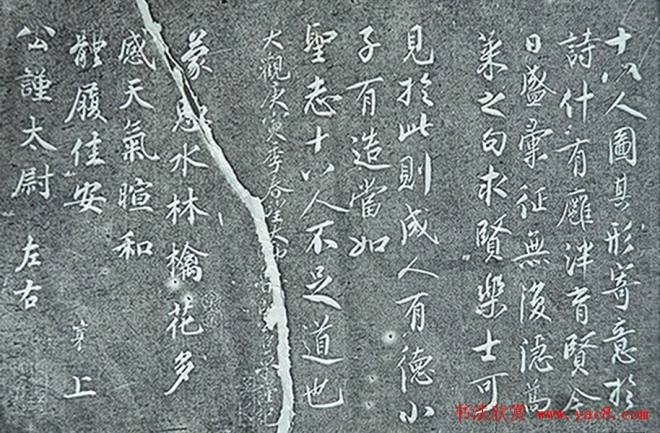 十八人圖其形寄意於
詩什有廱泮育賢今
日盛彙征無復
萊之句求賢樂士可
見於此則成人有德小
子有造當如
聖志十八人不足道也
大觀庚寅季春
蒙惠水林檎花多
感天氣暄和
體履佳安 襄上
公謹太尉 左右
书法欣赏 www.yac8.com